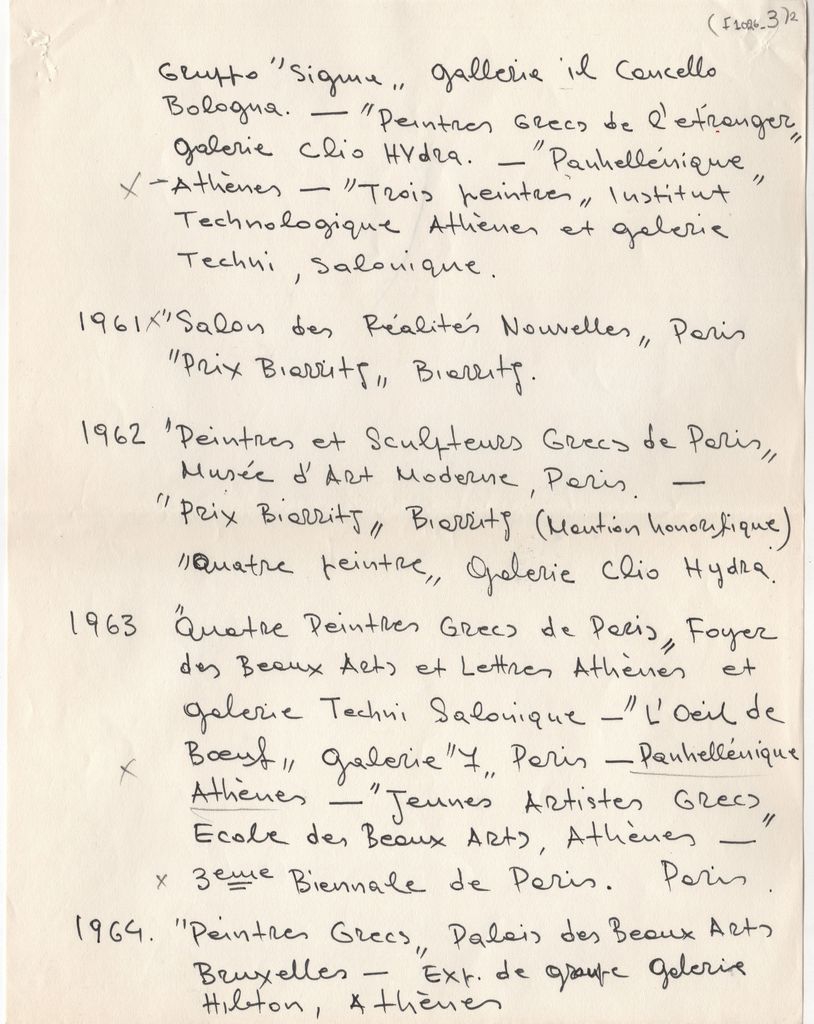 (I1026_3)2
Gruppo "Sigma„ galleria il Cancello
Bologna. — "Peintres Grecs de l'etranger„
galerie Clio HYdra. — "Panhellénique„
x - Athènes — "Trois peintres„ Institut
Technologique Athènes et galerie
Techni, Salonique.
1961 x "Salon des Réalités Nouvelles„ Paris
"Prix Biarritz„ Biarritz.
1962 "Peintres et Sculpteurs Grecs de Paris„
Musée d'Art Moderne, Paris. —
"Prix Biarritz„ Biarritz (Mention honorifique)
"Quatre peintre„ Galerie Clio Hydra.
1963 "Quatre Peintres Grecs de Paris„ Foyer
des Beaux Arts et Lettres Athènes et
galerie Techni Salonique — "L'Oeil de
Bœuf„ Galerie "7„ Paris — Panhellénique
x Athènes — "Jeunes Artistes Grecs„
Ecole des Beaux Arts, Athènes —
x 3eme Biennale de Paris. Paris.
1964. "Peintres Grecs„ Palais des Beaux Arts
Bruxelles — Exp. de groupe Galerie
Hilton, Athènes